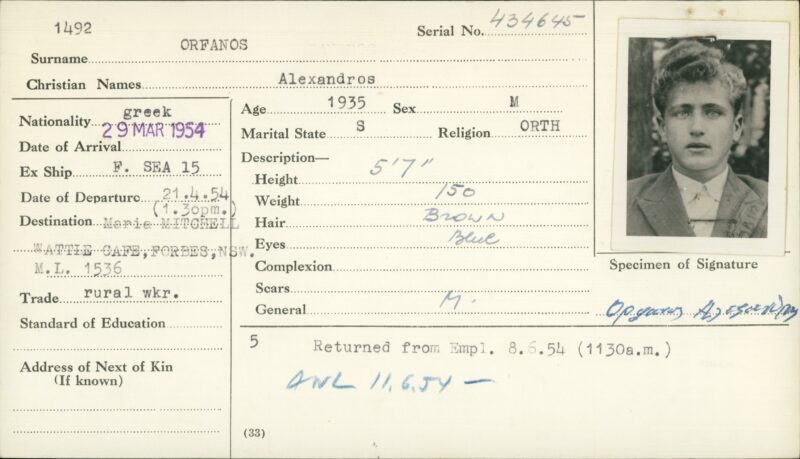 1492
Serial No. 434645
Surname ORFANOS
Christian Names Alexandros
Nationality greek
Date of Arrival 29 MAR 1954
Ex Ship F. SEA 15
Date of Departure 21.4.54
(1.30pm.)
Destination Maria MITCHELL
WATTLE CAFE, FORBES, NSW.
M.L. 1536
Trade rural wkr.
Standard of Education
Address of Next of Kin
(If known)
Age 1935 Sex M
Marital State S Religion ORTH
Description—
Height 5'7"
Weight 150
Hair Brown
Eyes Blue
Complexion
Scars
General M.
Specimen of Signature
5 Returned from Empl. 8.6.54 (1130a.m.)
AWL 11.6.54 —
(33)